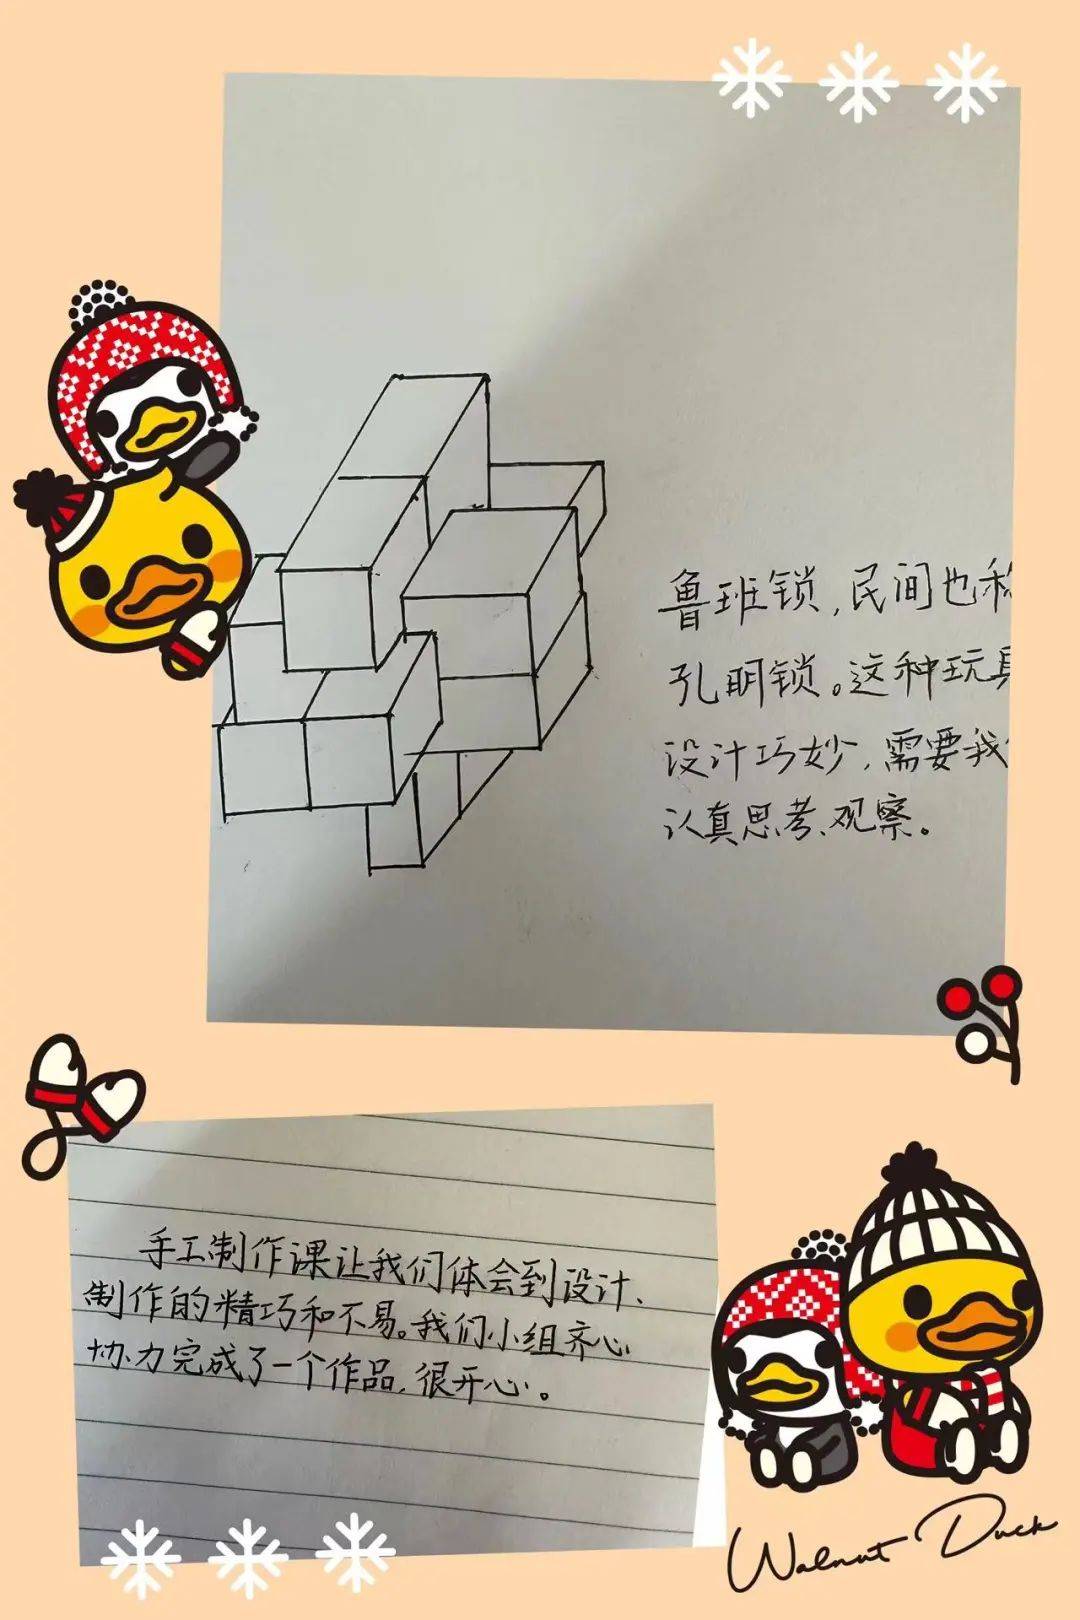 鲁班锁,民间也称
孔明锁。这种玩具
设计巧妙,需要我
认真思考、观察。
手工制作课让我们体会到设计、
制作的精巧和不易。我们小组齐心
协力完成了一个作品,很开心。
Walnut Duck